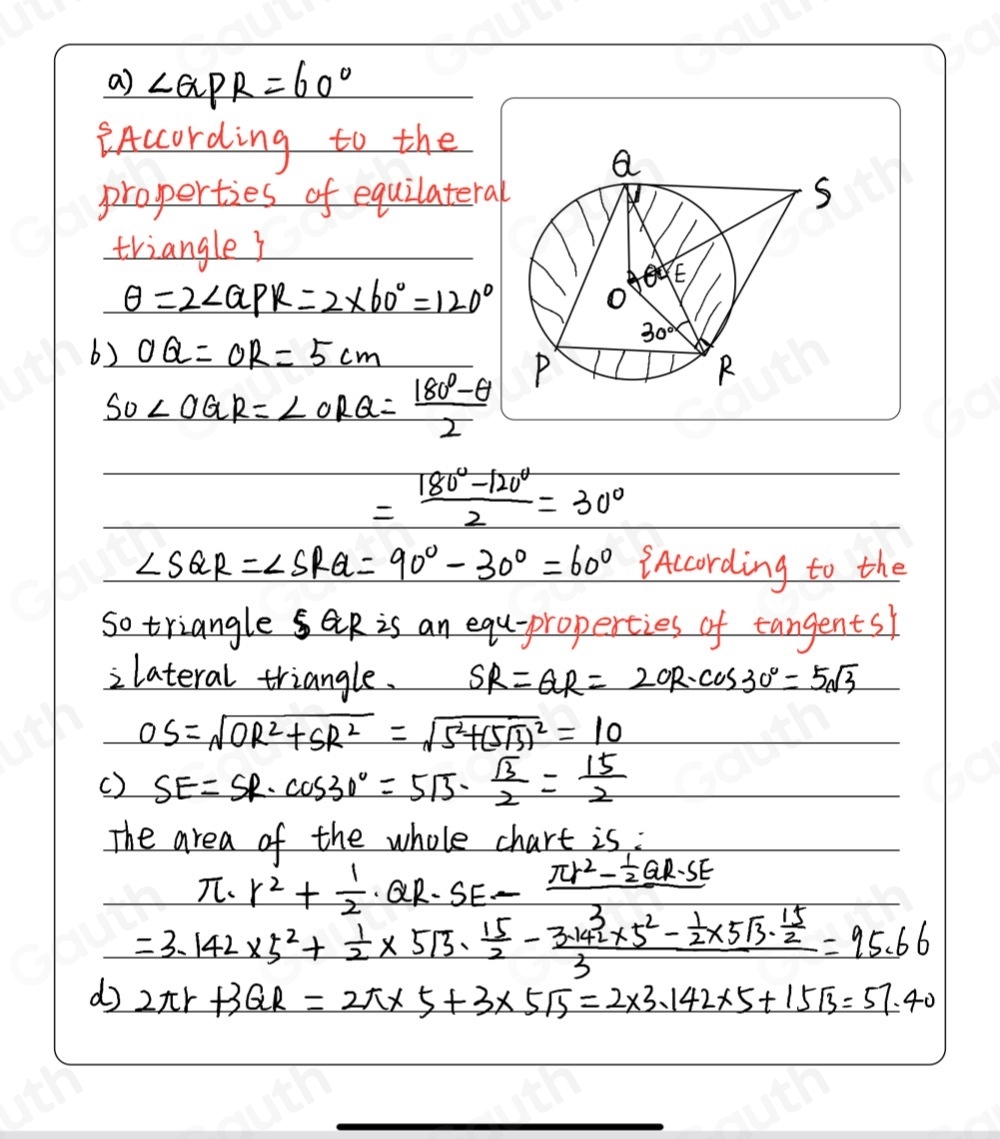 a) ∠QPR = 60°
{According to the
properties of equilateral
triangle}
θ = 2∠QPR = 2×60° = 120°
b) OQ = OR = 5 cm
So ∠OQR = ∠ORQ = (180° - θ)/2
= (180° - 120°)/2 = 30°
∠SQR = ∠SRQ = 90° - 30° = 60° {According to the
So triangle SQR is an equ- properties of tangents}
ilateral triangle. SR = QR = 2OR·cos30° = 5√3
OS = √(OR² + SR²) = √(5² + (5√3)²) = 10
c) SE = SR·cos30° = 5√3·√3/2 = 15/2
The area of the whole chart is:
π·r² + 1/2·QR·SE - (πr² - 1/2 QR·SE)/3
= 3.142×5² + 1/2×5√3·15/2 - (3.142×5² - 1/2×5√3·15/2)/3 = 95.66
d) 2πr + 3QR = 2π×5 + 3×5√3 = 2×3.142×5 + 15√3 = 57.40
Q
S
θ
E
O
30°
P
R
Gauth